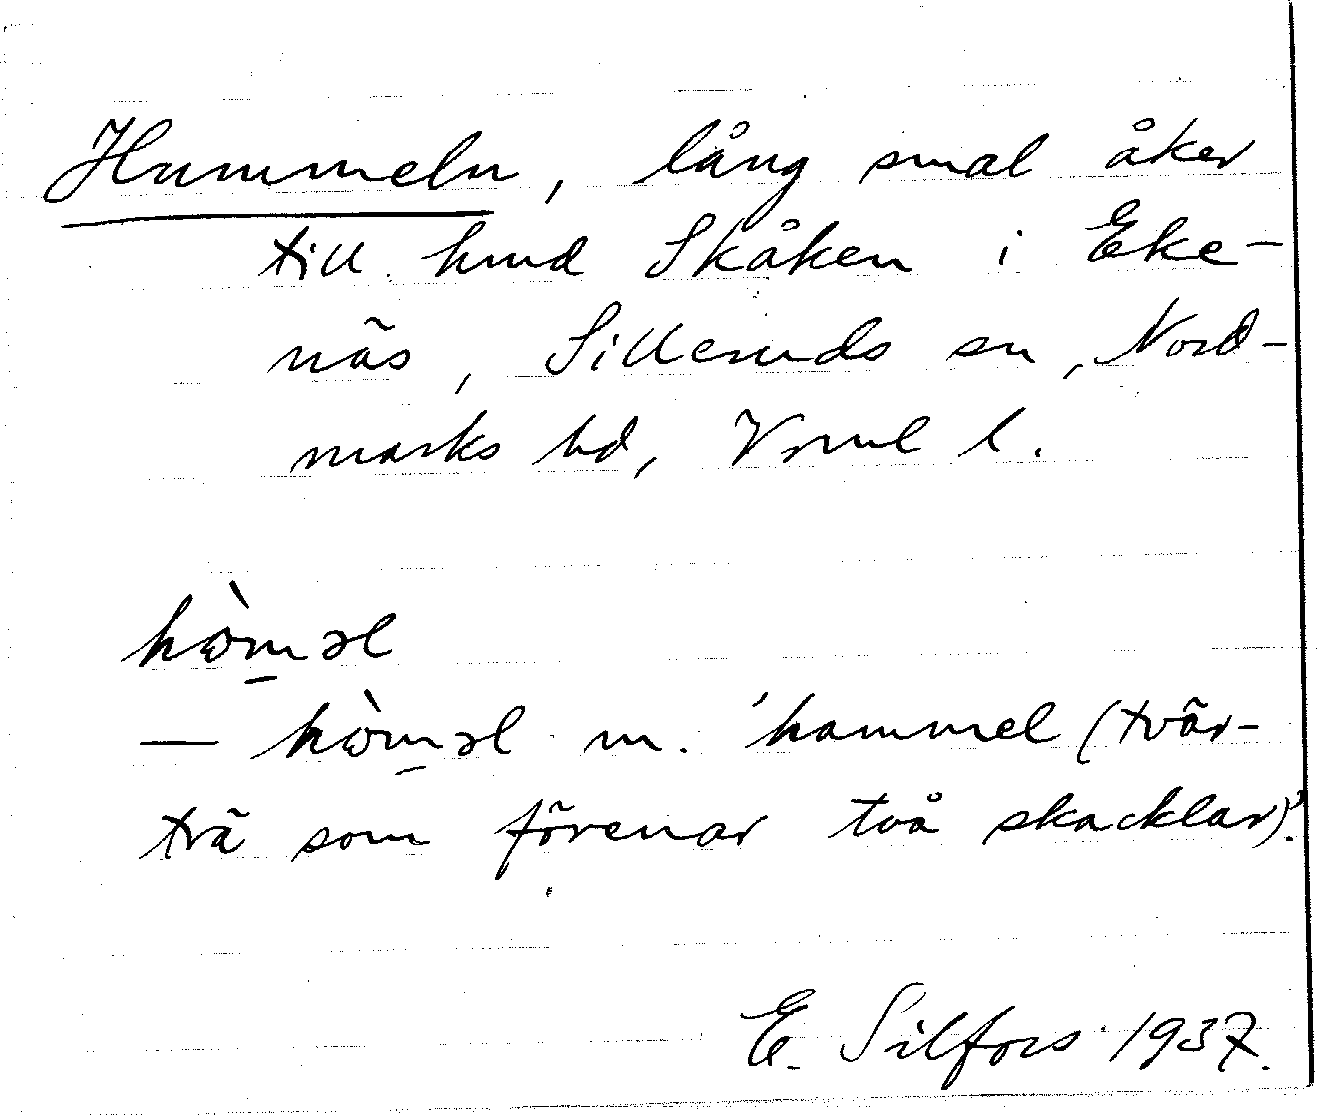 Hummeln, lång smal åker
till hmd Skåken i Eke-
näs, Silleruds sn, Nord-
marks hd, Vrml l.
hòm̲əl
— hòm̲əl m. 'hammel (tvär-
trä som förenar två skacklar)'.
E. Silfors 1937.